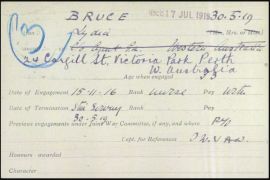 BRUCE 17 JUL 1919 30.5.19
Lydia
Western Australia
24 Cargill St. Victoria Park Perth
W. Australia
Age when engaged
Date of Engagement 15-11-16 Rank nurse Pay
Date of Termination Still Serving Rank Pay
30.5.19
Previous engagements under Joint War Committee, if any, and where
Dept. for References
Honours awarded
Character